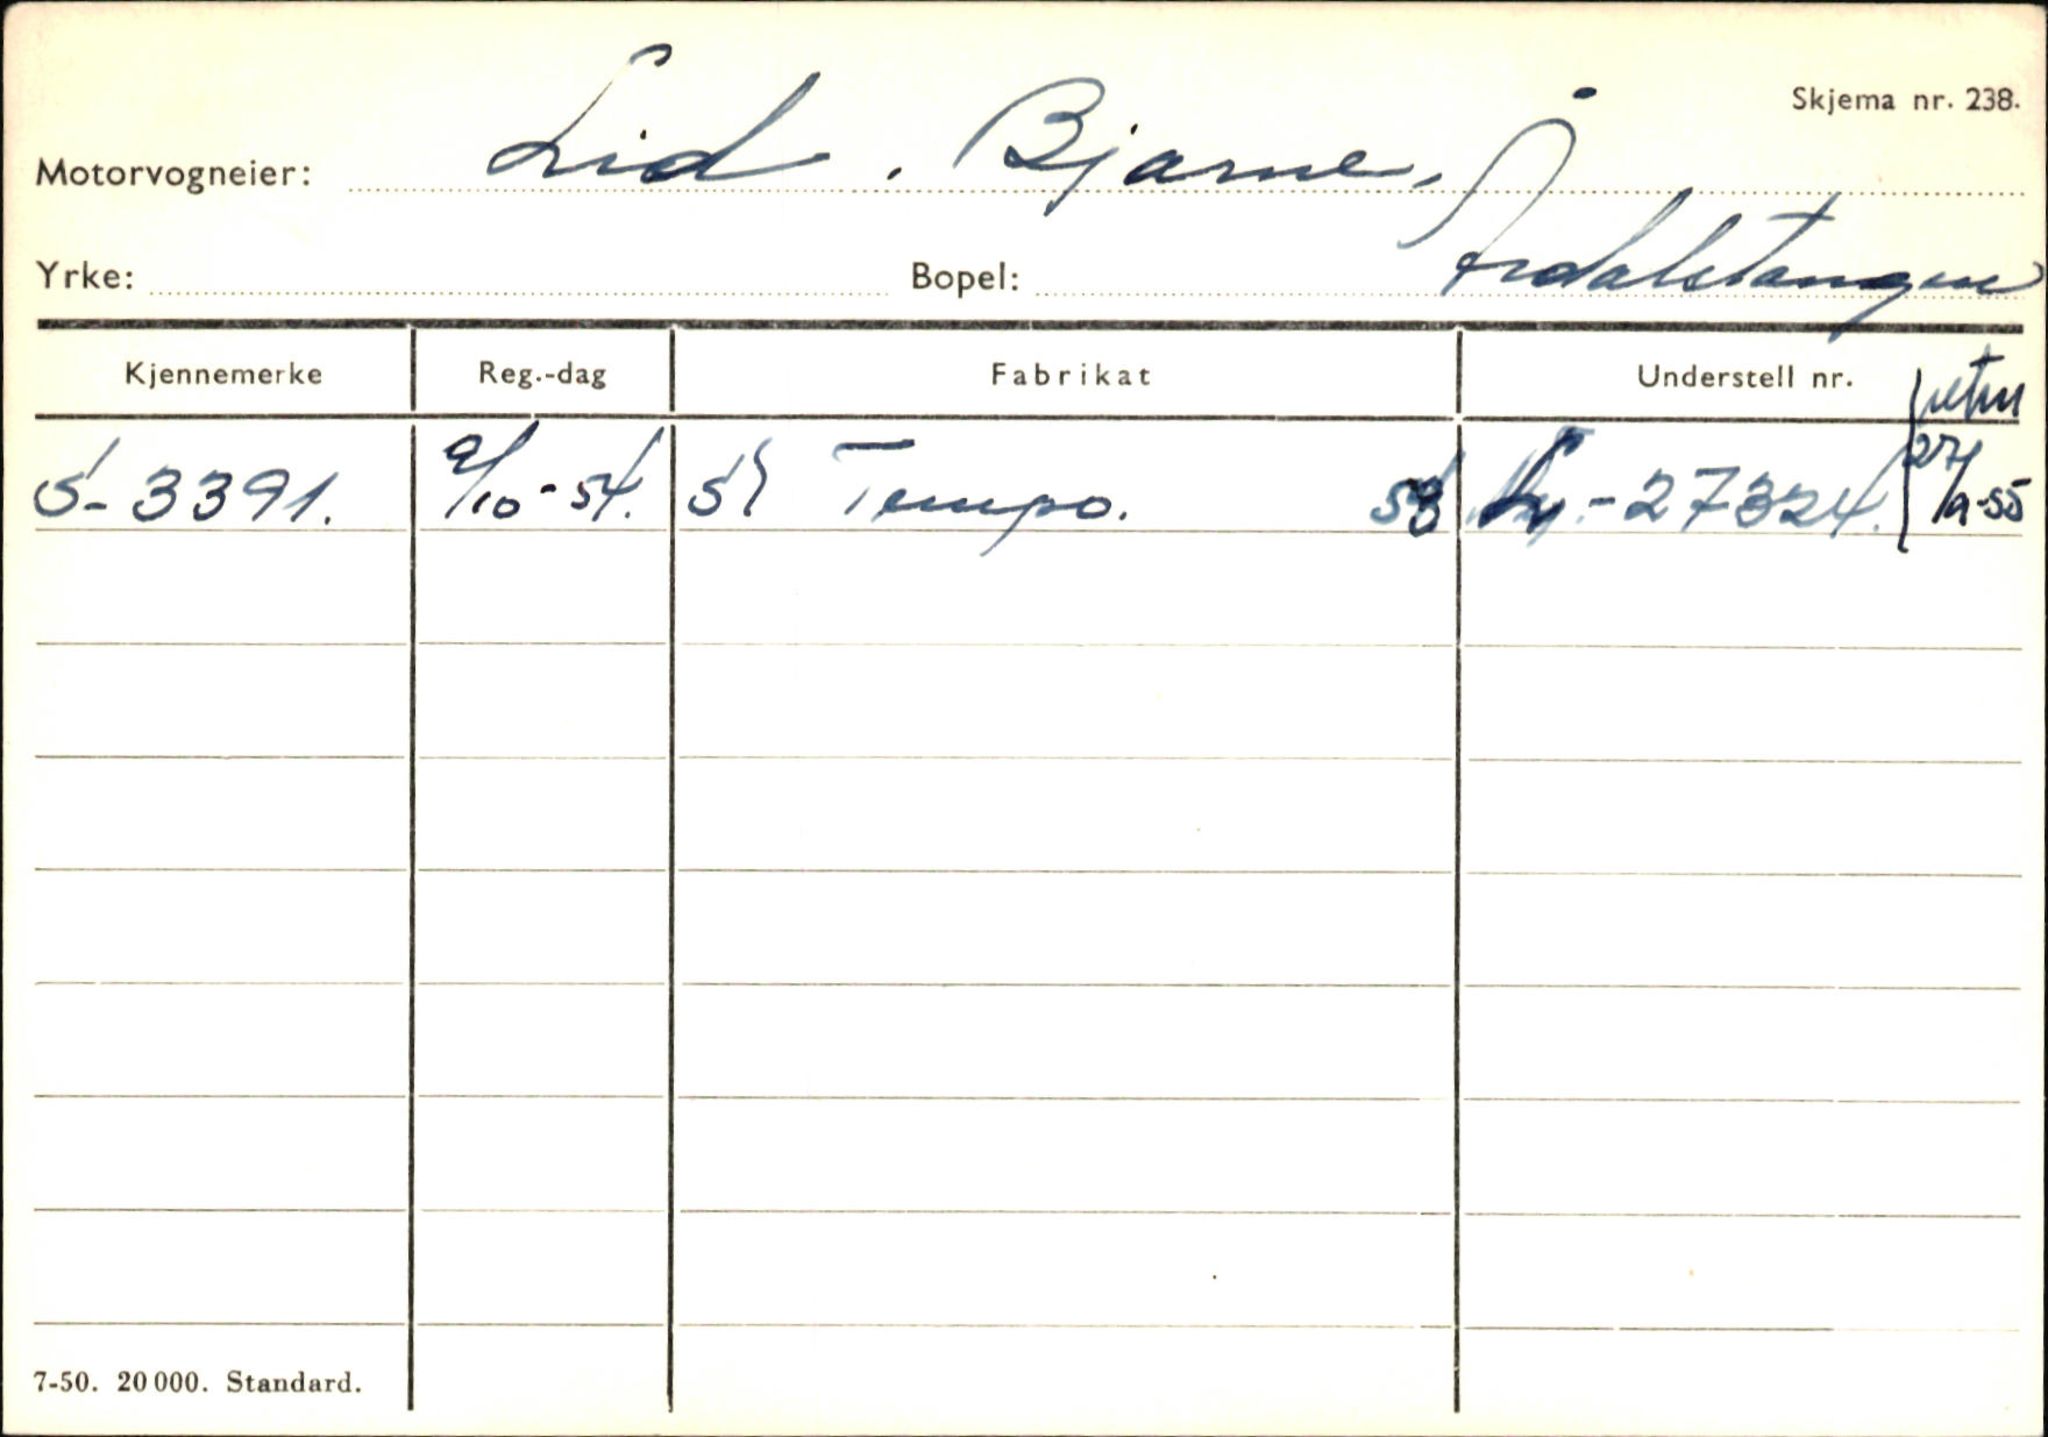 Skjema nr. 238.
Motorvogneier: Lid, Bjarne,
Yrke: Bopel: Årdalstangen
Kjennemerke Reg.-dag Fabrikat Understell nr. retur
S-3391. 9/10-54. Tempo. 53 -27324. 27/9-55
7-50. 20 000. Standard.